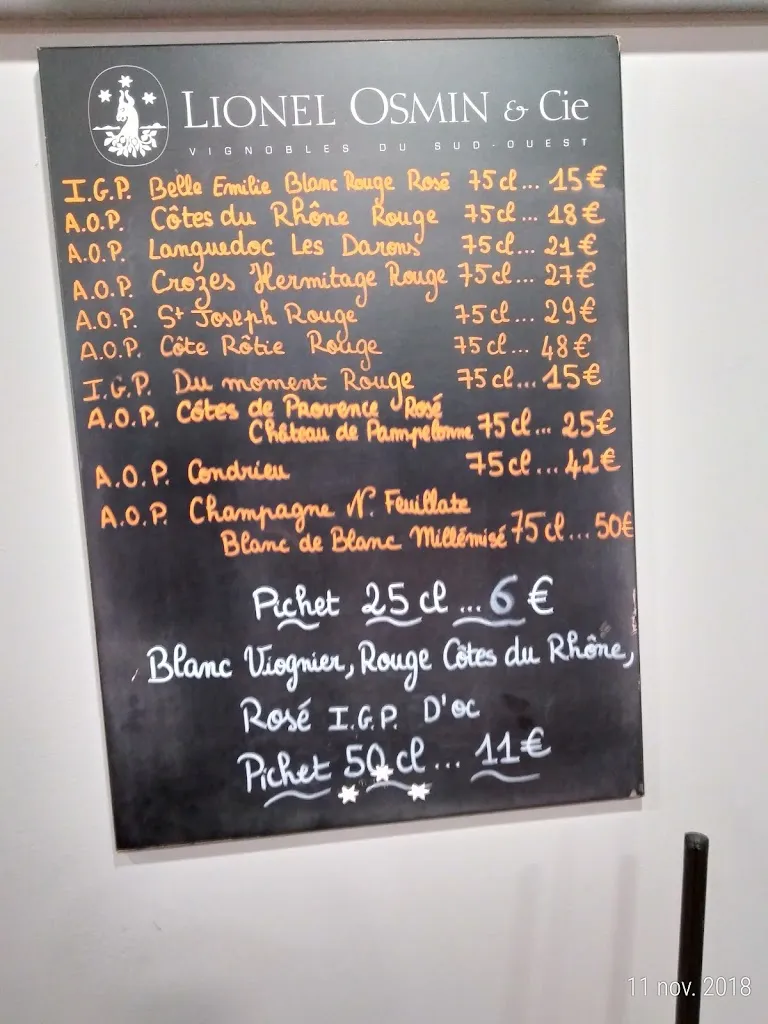 LIONEL OSMIN & Cie
VIGNOBLES DU SUD-OUEST
I.G.P. Belle Emilie Blanc Rouge Rosé 75 cl... 15€
A.O.P. Côtes du Rhône Rouge 75 cl... 18€
A.O.P. Languedoc Les Darons 75 cl... 21€
A.O.P. Crozes Hermitage Rouge 75 cl... 27€
A.O.P. St Joseph Rouge 75 cl... 29€
A.O.P. Côte Rôtie Rouge 75 cl... 48€
I.G.P. Du moment Rouge 75 cl... 15€
A.O.P. Côtes de Provence Rosé
Château de Pampelonne 75 cl... 25€
A.O.P. Condrieu 75 cl... 42€
A.O.P. Champagne N. Feuillate
Blanc de Blanc Millémisé 75 cl... 50€
Pichet 25 cl ... 6 €
Blanc Viognier, Rouge Côtes du Rhône,
Rosé I.G.P. D'oc
Pichet 50 cl ... 11€
11 nov. 2018